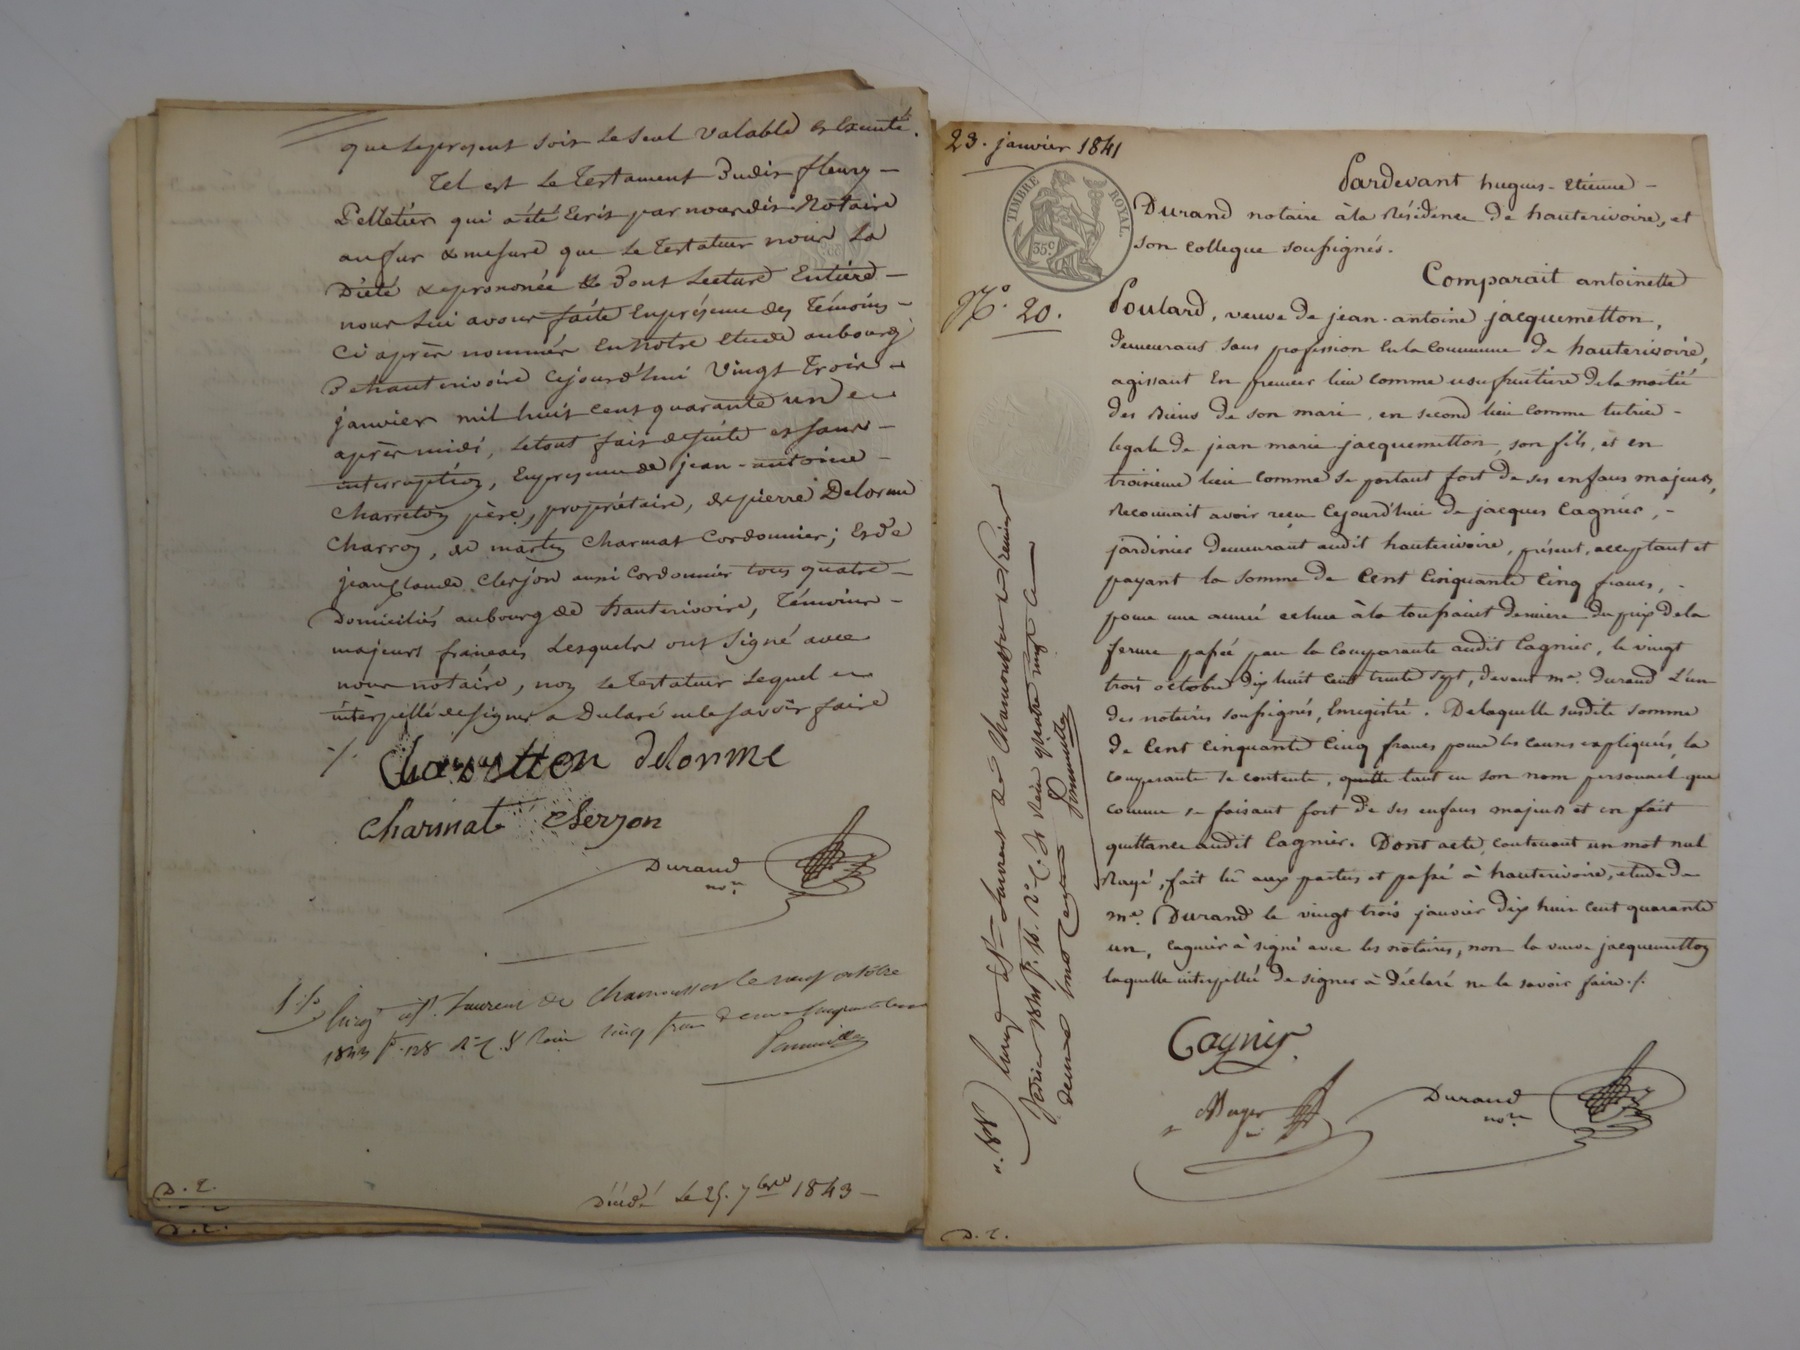 que le present soit le seul valable et exécuté.
Tel est le Testament Dudit fleury
Pelletier qui a été Ecrit par nous dit Notaire
au fur & mesure que le Testateur nous la
Dicté & prononcé & Dont Lecture Entière
nous lui avons faite En présence des Témoins
Ci après nommés En Notre Etude au bourg
De hauterivoire Cejourd'hui Vingt trois
janvier mil huit cent quarante un
après midi, le tout fait de suite et sans
interruption, En presence de jean-antoine
Charreton père, propriétaire, de pierre Delorme
Charron, de martin Charmat Cordonnier; Et de
jean Claude Clerjon aussi Cordonnier tous quatre
Domiciliés au bourg de hauterivoire, Témoins
majeurs francais Lesquels ont Signé avec
nous notaire, non le Testateur Lequel
interpellé de signer a Déclaré ne le savoir faire
Delorme
Charmat Clerjon
Durand
nore
Enrg à St. Laurent de Chamousset le neuf octobre
1843 fo. 128 Ro C. 8 Reçu cinq francs
Décédé Le 25. 7bre 1843
D. 2.
D. 2.
23. janvier 1841
TIMBRE ROYAL
35c
No. 20.
Pardevant hugues-Etienne
Durand notaire à la Résidence de hauterivoire, et
son collegue soussignés.
Comparait antoinette
Poulard, veuve de jean-antoine jacquemetton,
demeurant sans profession En la Commune de hauterivoire,
agissant En premier lieu comme usufruitière de la moitié
des Biens de son mari, en second lieu comme tutrice
legale de jean marie jacquemetton, son fils, et en
troisieme lieu comme se portant fort de ses enfans majeurs,
Reconnait avoir reçu Cejourd'hui de jacques Cagnier,
jardinier Demeurant audit hauterivoire, présent, acceptant et
payant la somme de Cent Cinquante Cinq francs,
pour une année echue à la toussaint derniere du prix de la
ferme passée par la Comparante audit Cagnier, le vingt
trois octobre dix huit cent trente sept, devant me. Durand L'un
des notaires soussignés, Enregistré. De laquelle susdite somme
de Cent Cinquante Cinq francs pour les causes expliquées, la
comparante se contente, quitte tant en son nom personnel que
comme se faisant fort de ses enfans majeurs et en fait
quittance audit Cagnier. Dont acte, contenant un mot nul
Rayé, fait lu aux parties et passé à hauterivoire, etude de
me. Durand le vingt trois janvier dix huit cent quarante
un, Cagnier à signé avec les notaires, non la veuve jacquemetton
laquelle interpellée de signer à Déclaré ne le savoir faire ./.
Cagnier
Durand
nore
Enrg à St. Laurent de Chamousset le Premier
D. 2.